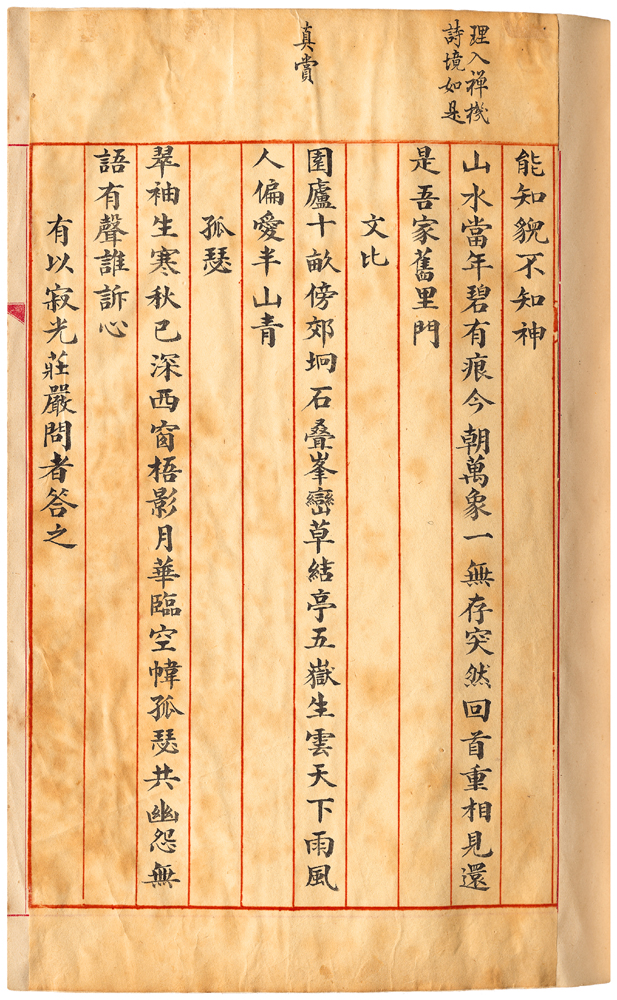 理入禅機
詩境如是
真賞
能知貌不知神
山水當年碧有痕今朝萬象一無存突然回首重相見還
是吾家舊里門
文比
園廬十畝傍郊坰石叠峯巒草結亭五嶽生雲天下雨風
人偏愛半山青
孤瑟
翠袖生寒秋已深西窗梧影月華臨空幃孤瑟共幽怨無
語有聲誰訴心
有以寂光莊嚴問者答之